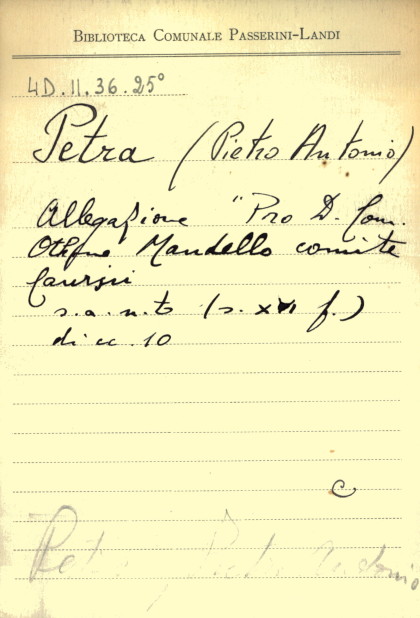 BIBLIOTECA COMUNALE PASSERINI-LANDI
4D.II.36.25°
Petra (Pietro Antonio)
Allegazione "Pro D. Com.
Mandello comite
s.a.n.t. (s. XVII f.)
di cc. 10
C
Petra Pietro Antonio